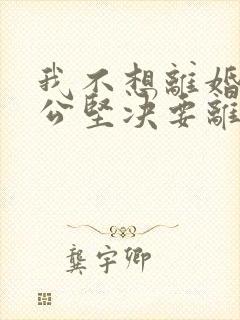 我不想離婚
公堅決要離
龔宇卿